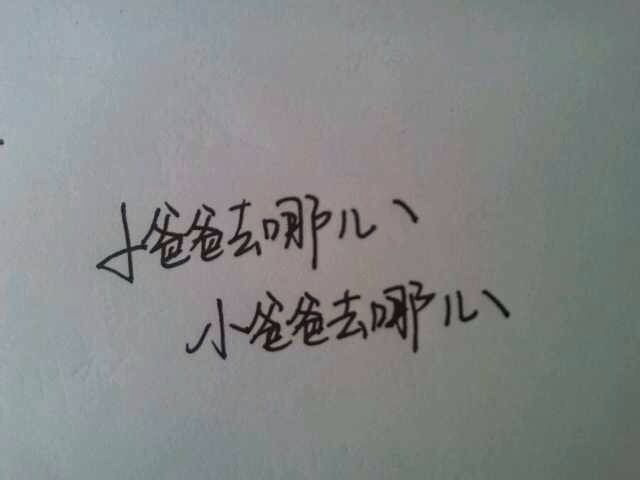 小爸爸去哪儿、
小爸爸去哪儿、